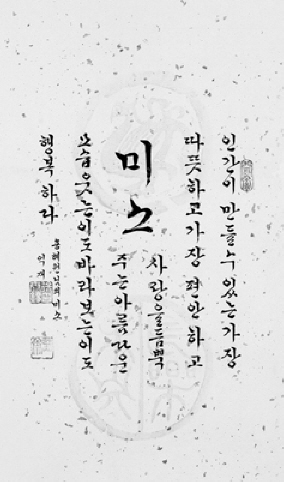 미소
인간이 만들 수 있는 가장
따뜻하고 가장 편안하고
사랑을 듬뿍
주는 아름다운
모습 웃는 이도 바라보는 이도
행복 하라
미소